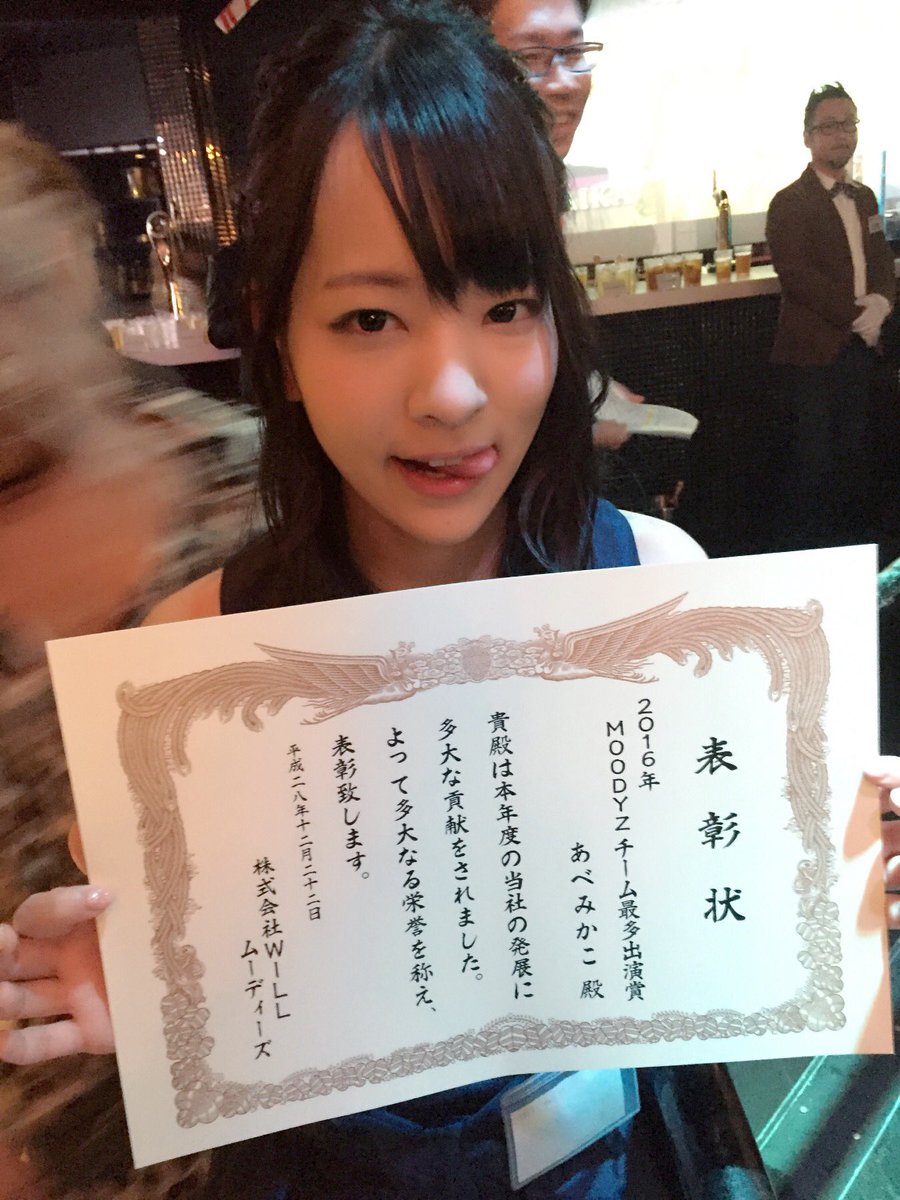 表彰状
2016年
MOODYZチーム最多出演賞
あべみかこ 殿
貴殿は本年度の当社の発展に
多大な貢献をされました。
よって多大なる栄誉を称え、
表彰致します。
平成二八年十二月二十二日
株式会社WILL
ムーディーズ